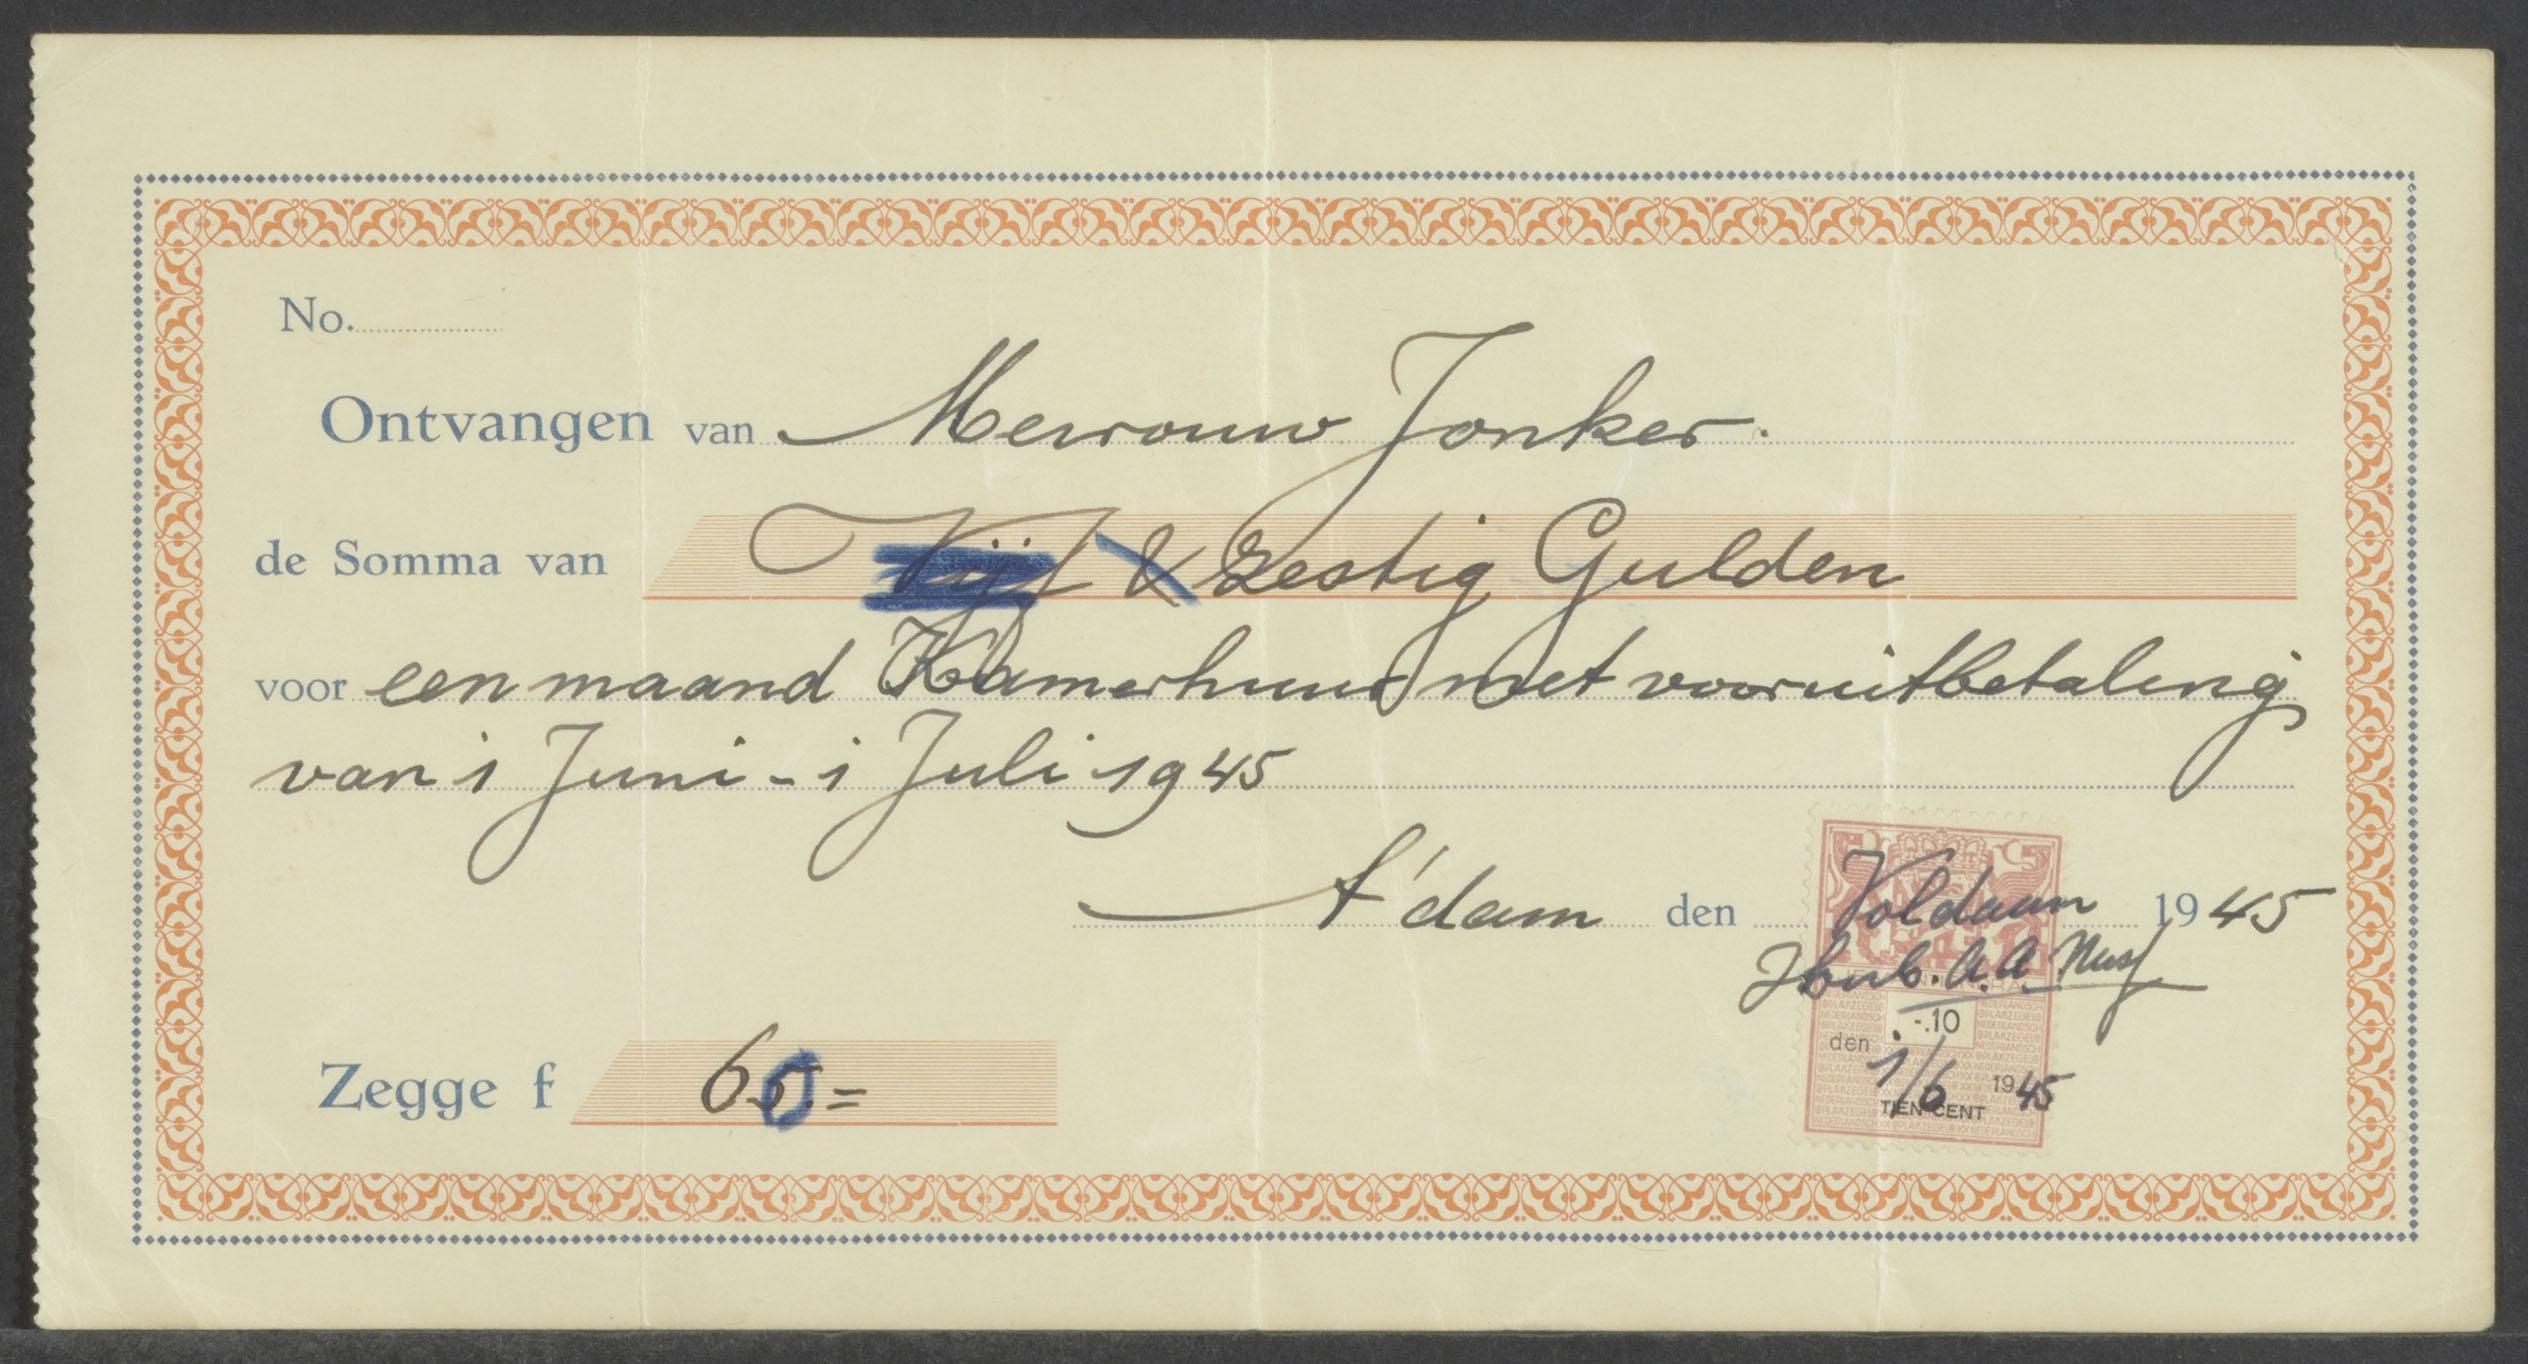 No.
Ontvangen van Mevrouw Jonker.
de Somma van Vijf & Zestig Gulden
voor een maand Kamerhuur met vooruitbetaling
van 1 Juni - 1 Juli 1945
A'dam den Voldaan 1945
A. A.
-.10
den 1/6 1945
TIEN CENT
Zegge f 60 =